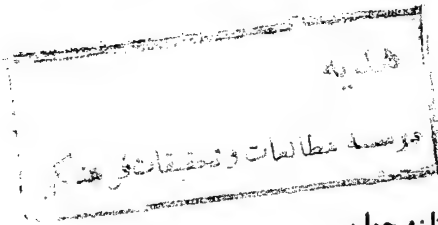 هدیه
موسسه مطالعات و تحقیقات فرهنگی